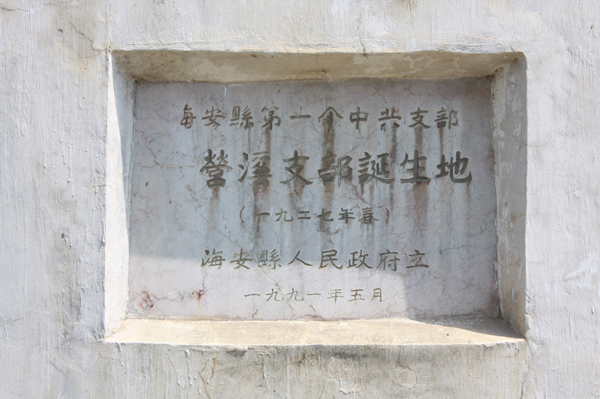 海安縣第一个中共支部
營溪支部誕生地
（一九二七年春）
海安縣人民政府立
一九九一年五月